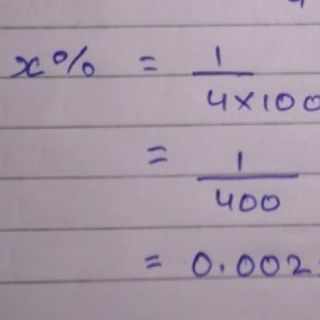 x% = 1/4×100
= 1/400
= 0.002